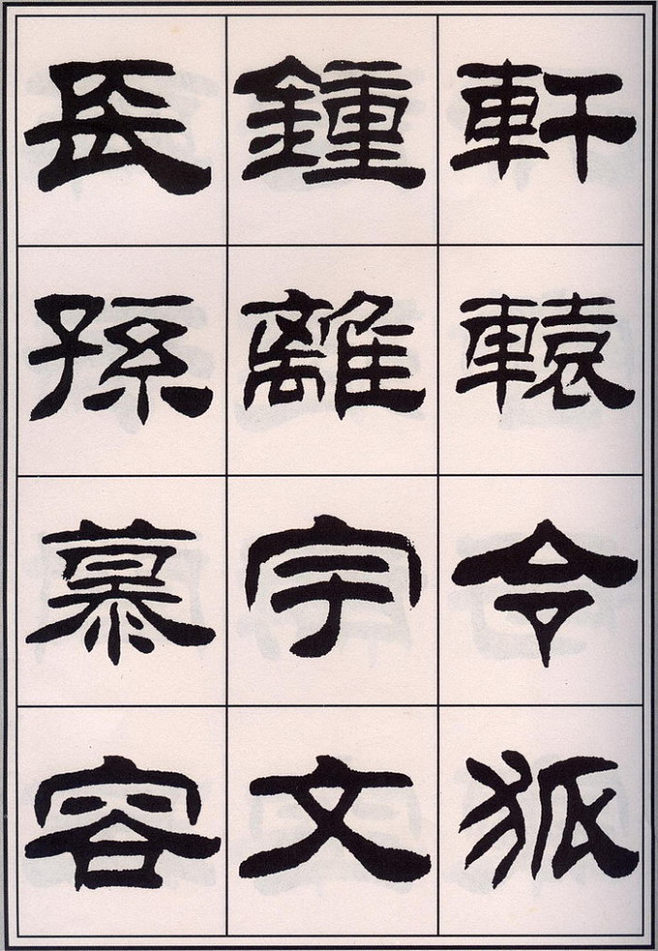 軒轅令狐
鍾離宇文
長孫慕容